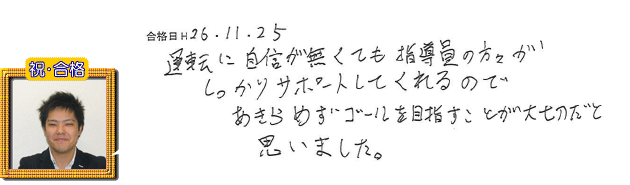 合格日H26.11.25
祝・合格
運転に自信が無くても指導員の方々が
しっかりサポートしてくれるので
あきらめずゴールを目指すことが大切だと
思いました。